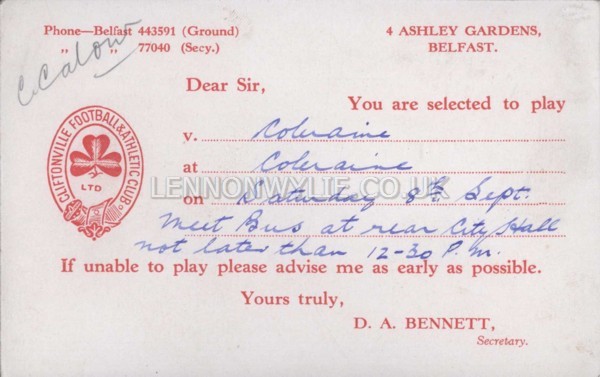 Phone—Belfast 443591 (Ground)
„ „ 77040 (Secy.)
4 ASHLEY GARDENS,
BELFAST.
Dear Sir,
You are selected to play
v. Coleraine
at Coleraine
on Saturday 8th Sept.
Meet Bus at rear City Hall
not later than 12-30 P.M.
If unable to play please advise me as early as possible.
Yours truly,
D. A. BENNETT,
Secretary.
CLIFTONVILLE FOOTBALL & ATHLETIC CLUB
LTD
LENNONWYLIE.CO.UK